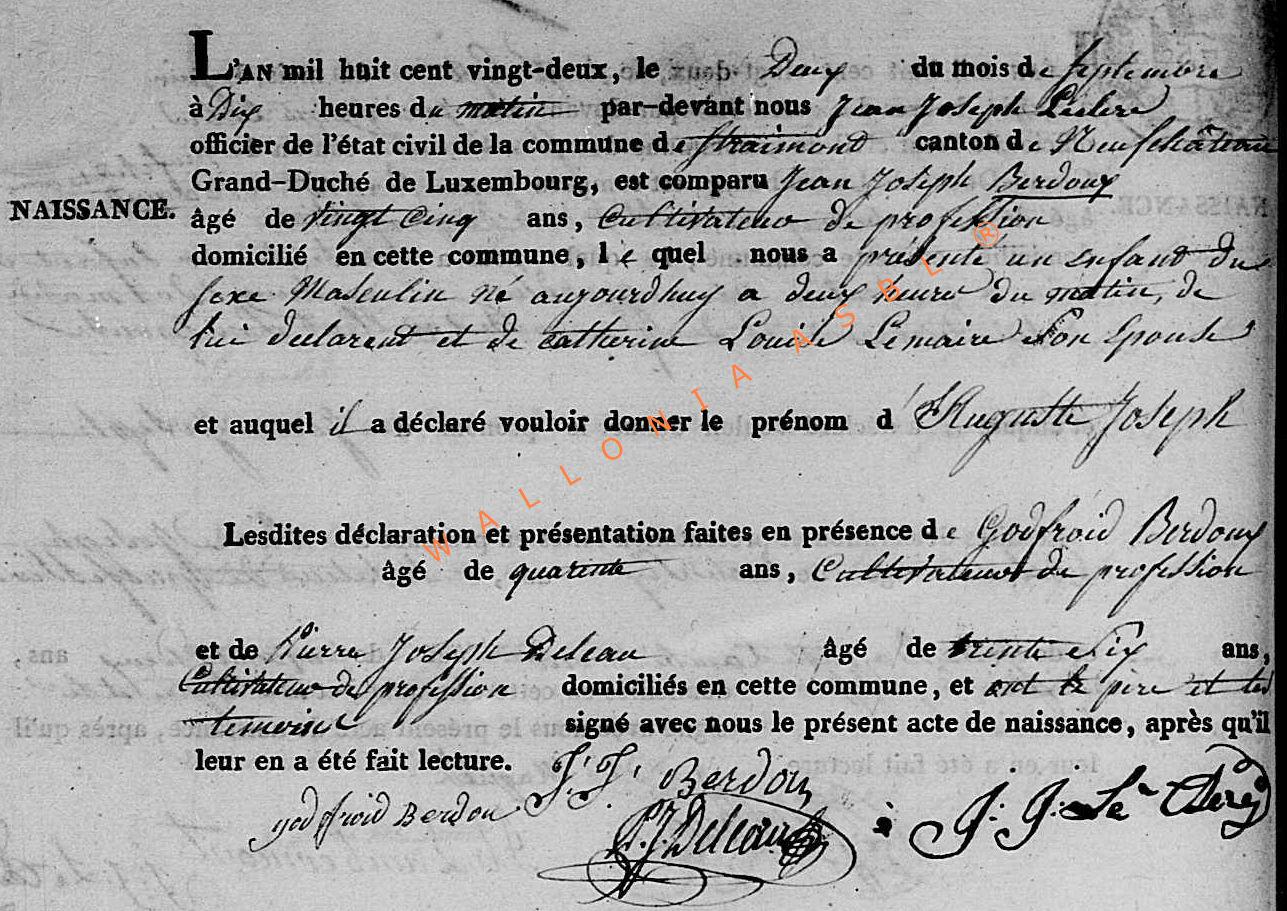 L'AN mil huit cent vingt-deux, le Deux du mois de Septembre
à Dix heures du matin par-devant nous Jean Joseph Leclere
officier de l'état civil de la commune de Straimont canton de Neufchâteau
Grand-Duché de Luxembourg, est comparu Jean Joseph Berdoux
NAISSANCE.
âgé de vingt cinq ans, Cultivateur de profession
domicilié en cette commune, le quel nous a présenté un enfant du
sexe Masculin né aujourdhuy a deux heures du matin, de
lui declarent et de catherine Louise Lemaire son Epouse
et auquel il a déclaré vouloir donner le prénom d' Auguste Joseph
Lesdites déclaration et présentation faites en présence de Godfroid Berdoux
âgé de quarente ans, Cultivateur de profession
et de Pierre Joseph Deleau âgé de trente Six ans,
Cultivateur de profession domiciliés en cette commune, et ont le pere et les
temoins signé avec nous le présent acte de naissance, après qu'il
leur en a été fait lecture. J. J. Berdoux
godfroid Berdoux P. J. Deleau J. J. Le Clere
WALLONIA ASBL ®